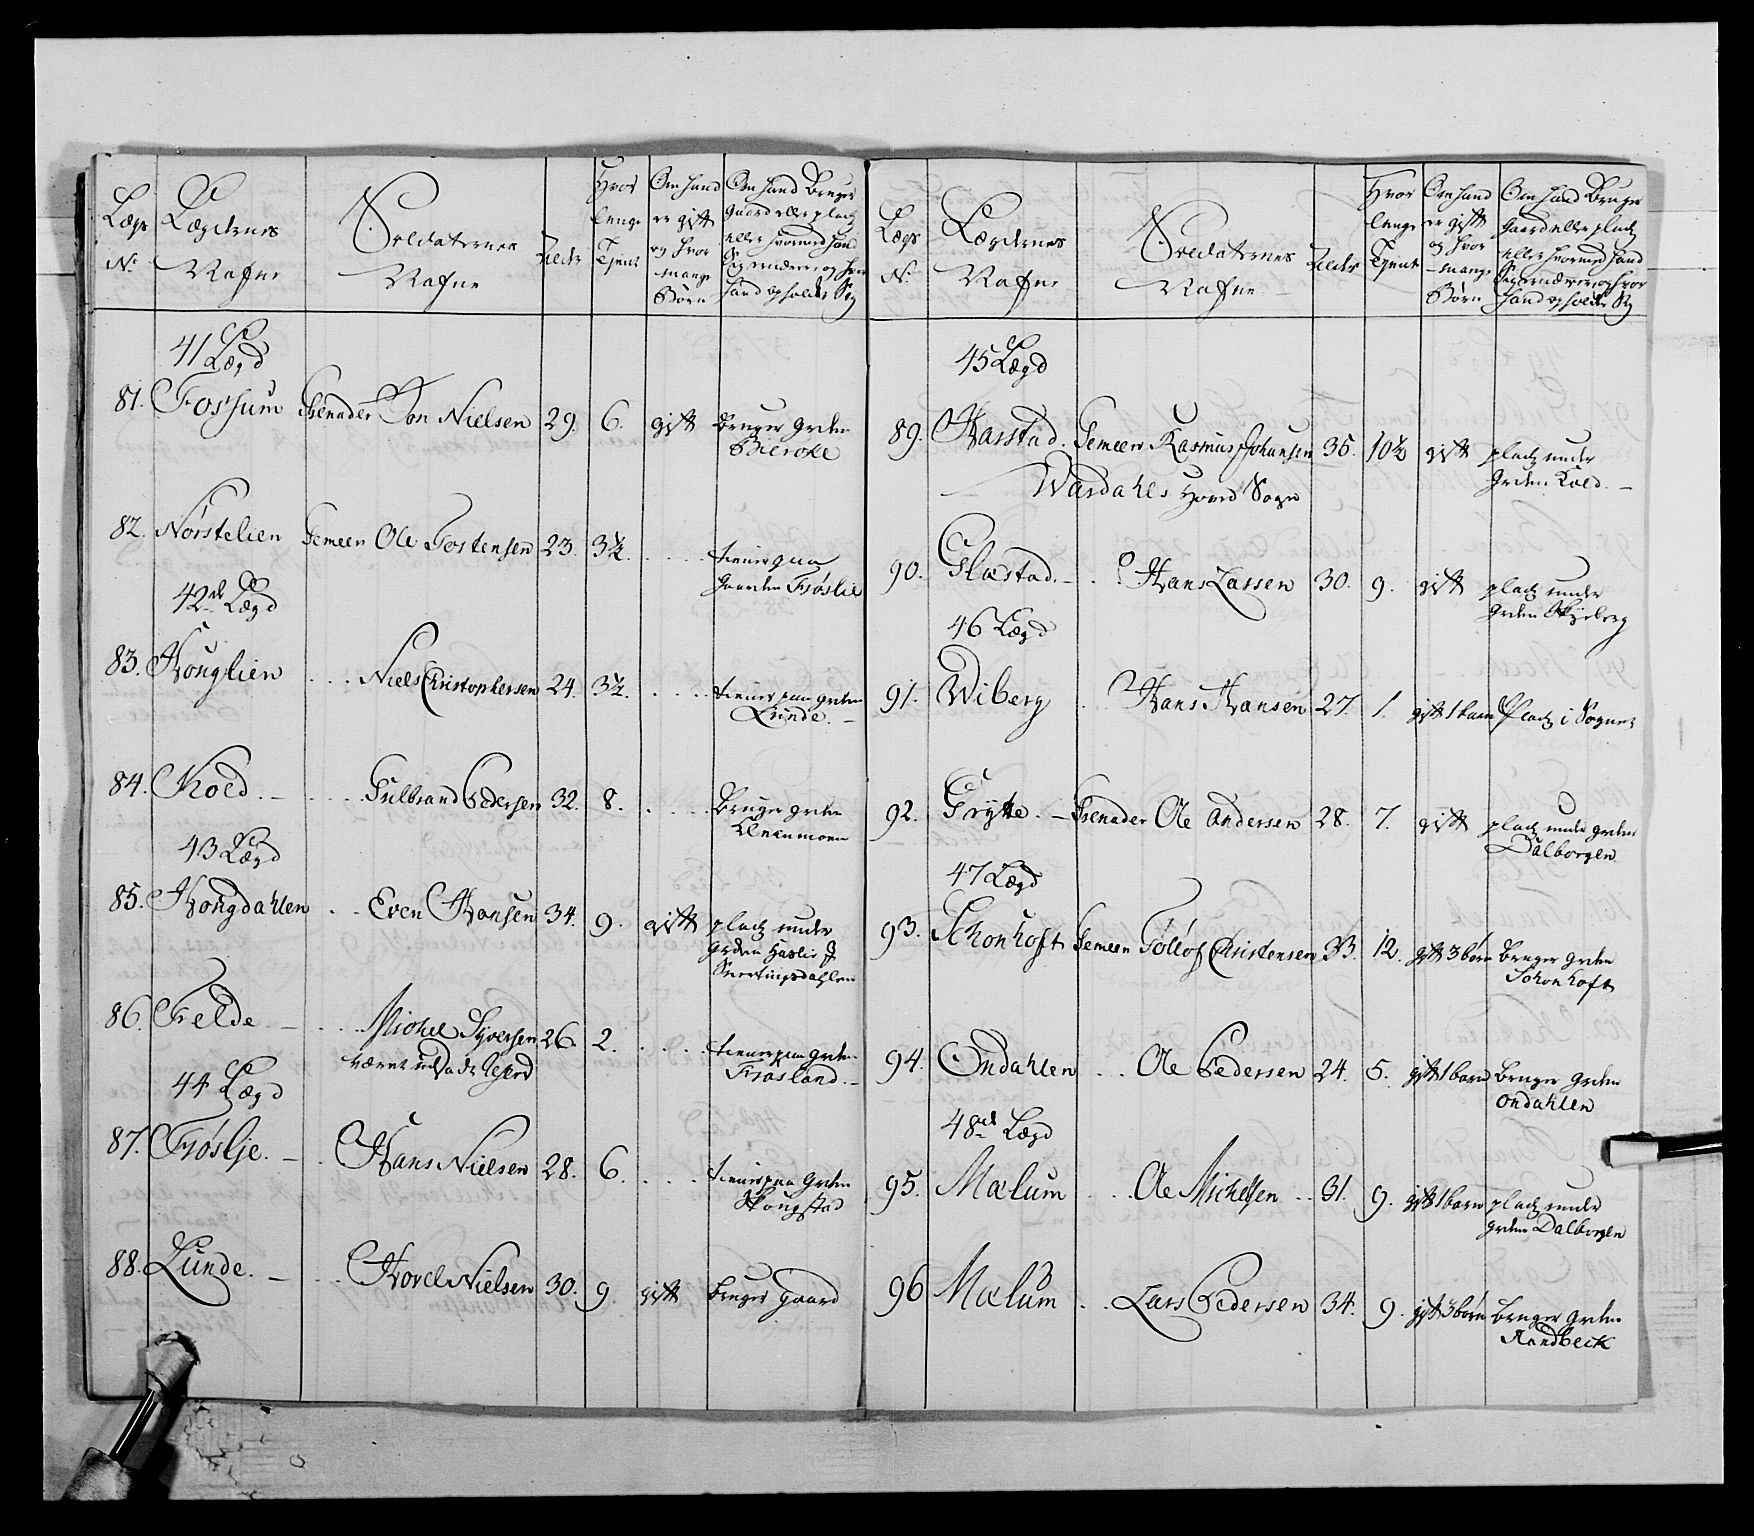 Lægs
N.
Lægdernes
Nafne
Soldaternes
Nafne
Alder
Hvor
lenge
Tient
Om hand
er gift
og hvor
mange
Børn
Om hand Bruger
Gaard eller plads
eller hvormed hand
Sig ernærer og hvor
hand opholder Sig
41 Lægd
81. Fossum Grenader Jon Nielsen 29. 6. gift Bruger Grden
Bierche
82. Norstelien Gemeen Ole Tostensen 23. 3½. . . . . tiener paa
Gaarden Frøslie
42de Lægd
83. Houglien . . . Niels Christophersen 24. 3½. . . . . tiener paa grden
Lunde. –
84. Kold. – . . . . Gulbrand Pedersen 32. 8. . . . . Bruger grden
43 Lægd
85. Hougdahlen . . Even Hansen 34. 9. gift plads under
Grden Haslie J
Snertingsdahlen
86. Felde. – . . . . Michel Syversen 26. 2. . . . . tiener paa grden
Frøsland. –
44 Lægd
87. Frøslje. – . Hans Nielsen 28. 6. . . . . tiener paa Grden
Skougstad
88. Lunde. – . . . Hovel Nielsen 30. 9. gift bruger gaard
Lægs
N.
Lægdernes
Nafne
Soldaternes
Nafne
Alder
Hvor
lenge
Tient
Om hand
er gift
og hvor
mange
Børn
Om hand Bruger
Gaard eller plads
eller hvormed hand
Sig ernærer og hvor
hand opholder Sig
45 Lægd
89. Harstad. Gemeen Rasmus Johansen 35. 10½ gift plads under
Grden Kold. –
Wardahls Hoved Sogn
90. Glæstad. – . Hans Larsen 30. 9. gift plads under
grden Skyberg
46 Lægd
91. Wiberg . Hans Hansen 27. 1. gift 1 barn Plads i Sognet
92. Grytte. – Grenader Ole Andersen 28. 7. gift plads under grden
Dalborgen
47 Lægd
93. Schonhoft Gemeen Tølløf Christensen 33. 12. gift 3 børn Bruger Grden
Schonhoft
94. Ondahlen . . Ole Pedersen 24. 5. gift 1 barn bruger Grden
Ondahlen
48de Lægd
95. Mælum . . . Ole Michelsen . . 31. 9. gift 1 barn plads under
grden Dalborgen
96 Mælum . . Lars Pedersen 34. 9. gift 3 børn bruger Grden
Randbeck